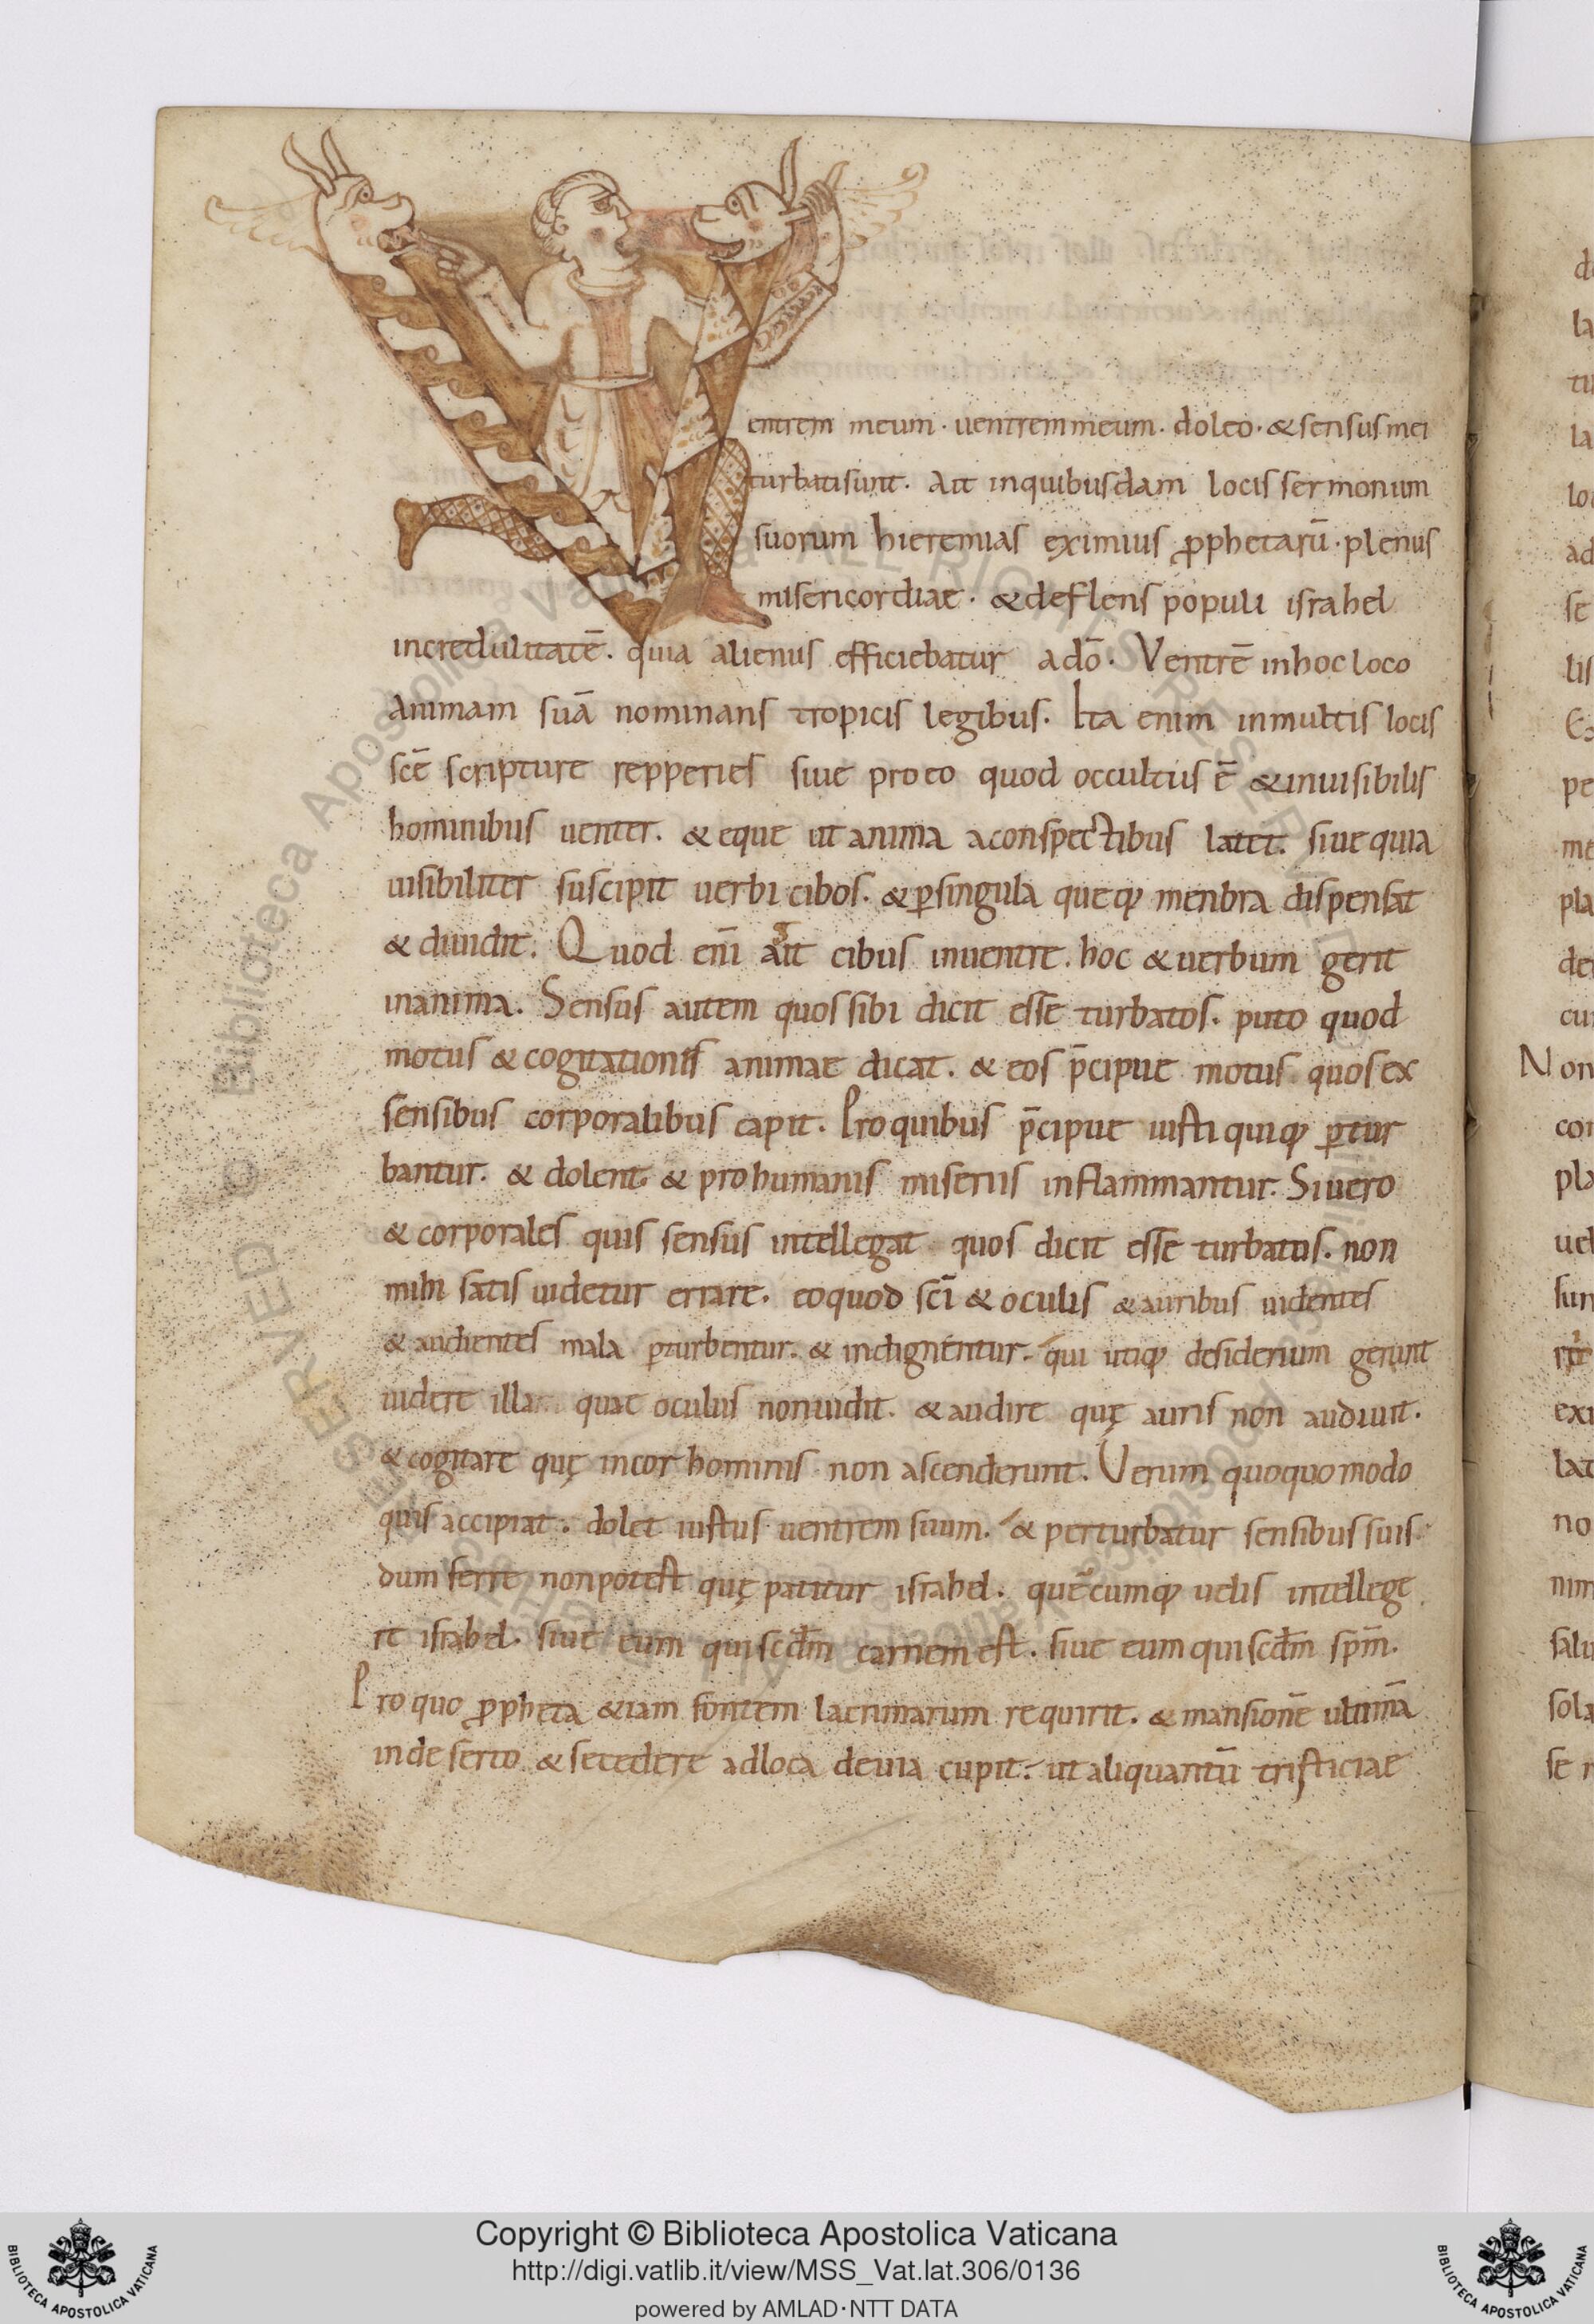 Ventrem meum· uentrem meum· doleo· & sensus mei
turbati sunt. Ait inquibusdam locis sermonum
suorum hieremias eximius ꝓphetarū· plenus
misericordiae· & deflens populi israhel
incredulitatē. quia alienus efficiebatur adō· Ventrē inhoc loco
animam suā nominans tropicis legibus. Ita enim inmultis locis
scē scripture repperies siue proeo quod occultus ē & inuisibilis
hominibus uenter. & eque ut anima aconspectibus latet. siue quia
uisibiliter suscipit uerbi cibos. & ꝑsingula queqꝫ menbra dispensat
& diuidit. Quod enī cibus inuentre. hoc & uerbum gerit
inanima. Sensus autem quos sibi dicit esse turbatos. puto quod
motus & cogitationis animae dicat. & eos p̄cipue motus quos ex
sensibus corporalibus capit. Pro quibus p̄cipue iusti quiqꝫ ꝑtur
bantur. & dolent. & pro humanis miseriis inflammantur. Si uero
& corporales quis sensus intellegat quos dicit esse turbatos. non
mihi satis uidetur errare. eoquod scī & oculis & auribus uidentes
& audientes mala ꝑturbentur. & indignentur. qui utiqꝫ desiderium gerunt
uidere illa quae oculus nonuidit. & audire quę auris non audiuit.
& cogitare quę incor hominis non ascenderunt. Verum quoquomodo
quis accipiat. dolet iustus uentrem suum. & perturbatur sensibus suis.
dum ferre nonpotest quę patitur israhel. quēcumqꝫ uelis intellege
re israhel. siue eum qui scdm̄ carnem est. siue eum qui scdm̄ spm̄.
Pro quo ꝓpheta &iam fontem lacrimarum requirit. & mansionē ultimā
indeserto & secedere adloca deuia cupit. ut aliquantū tristiciae
Copyright © Biblioteca Apostolica Vaticana
http://digi.vatlib.it/view/MSS_Vat.lat.306/0136
powered by AMLAD·NTT DATA
BIBLIOTECA APOSTOLICA VATICANA
BIBLIOTECA APOSTOLICA VATICANA